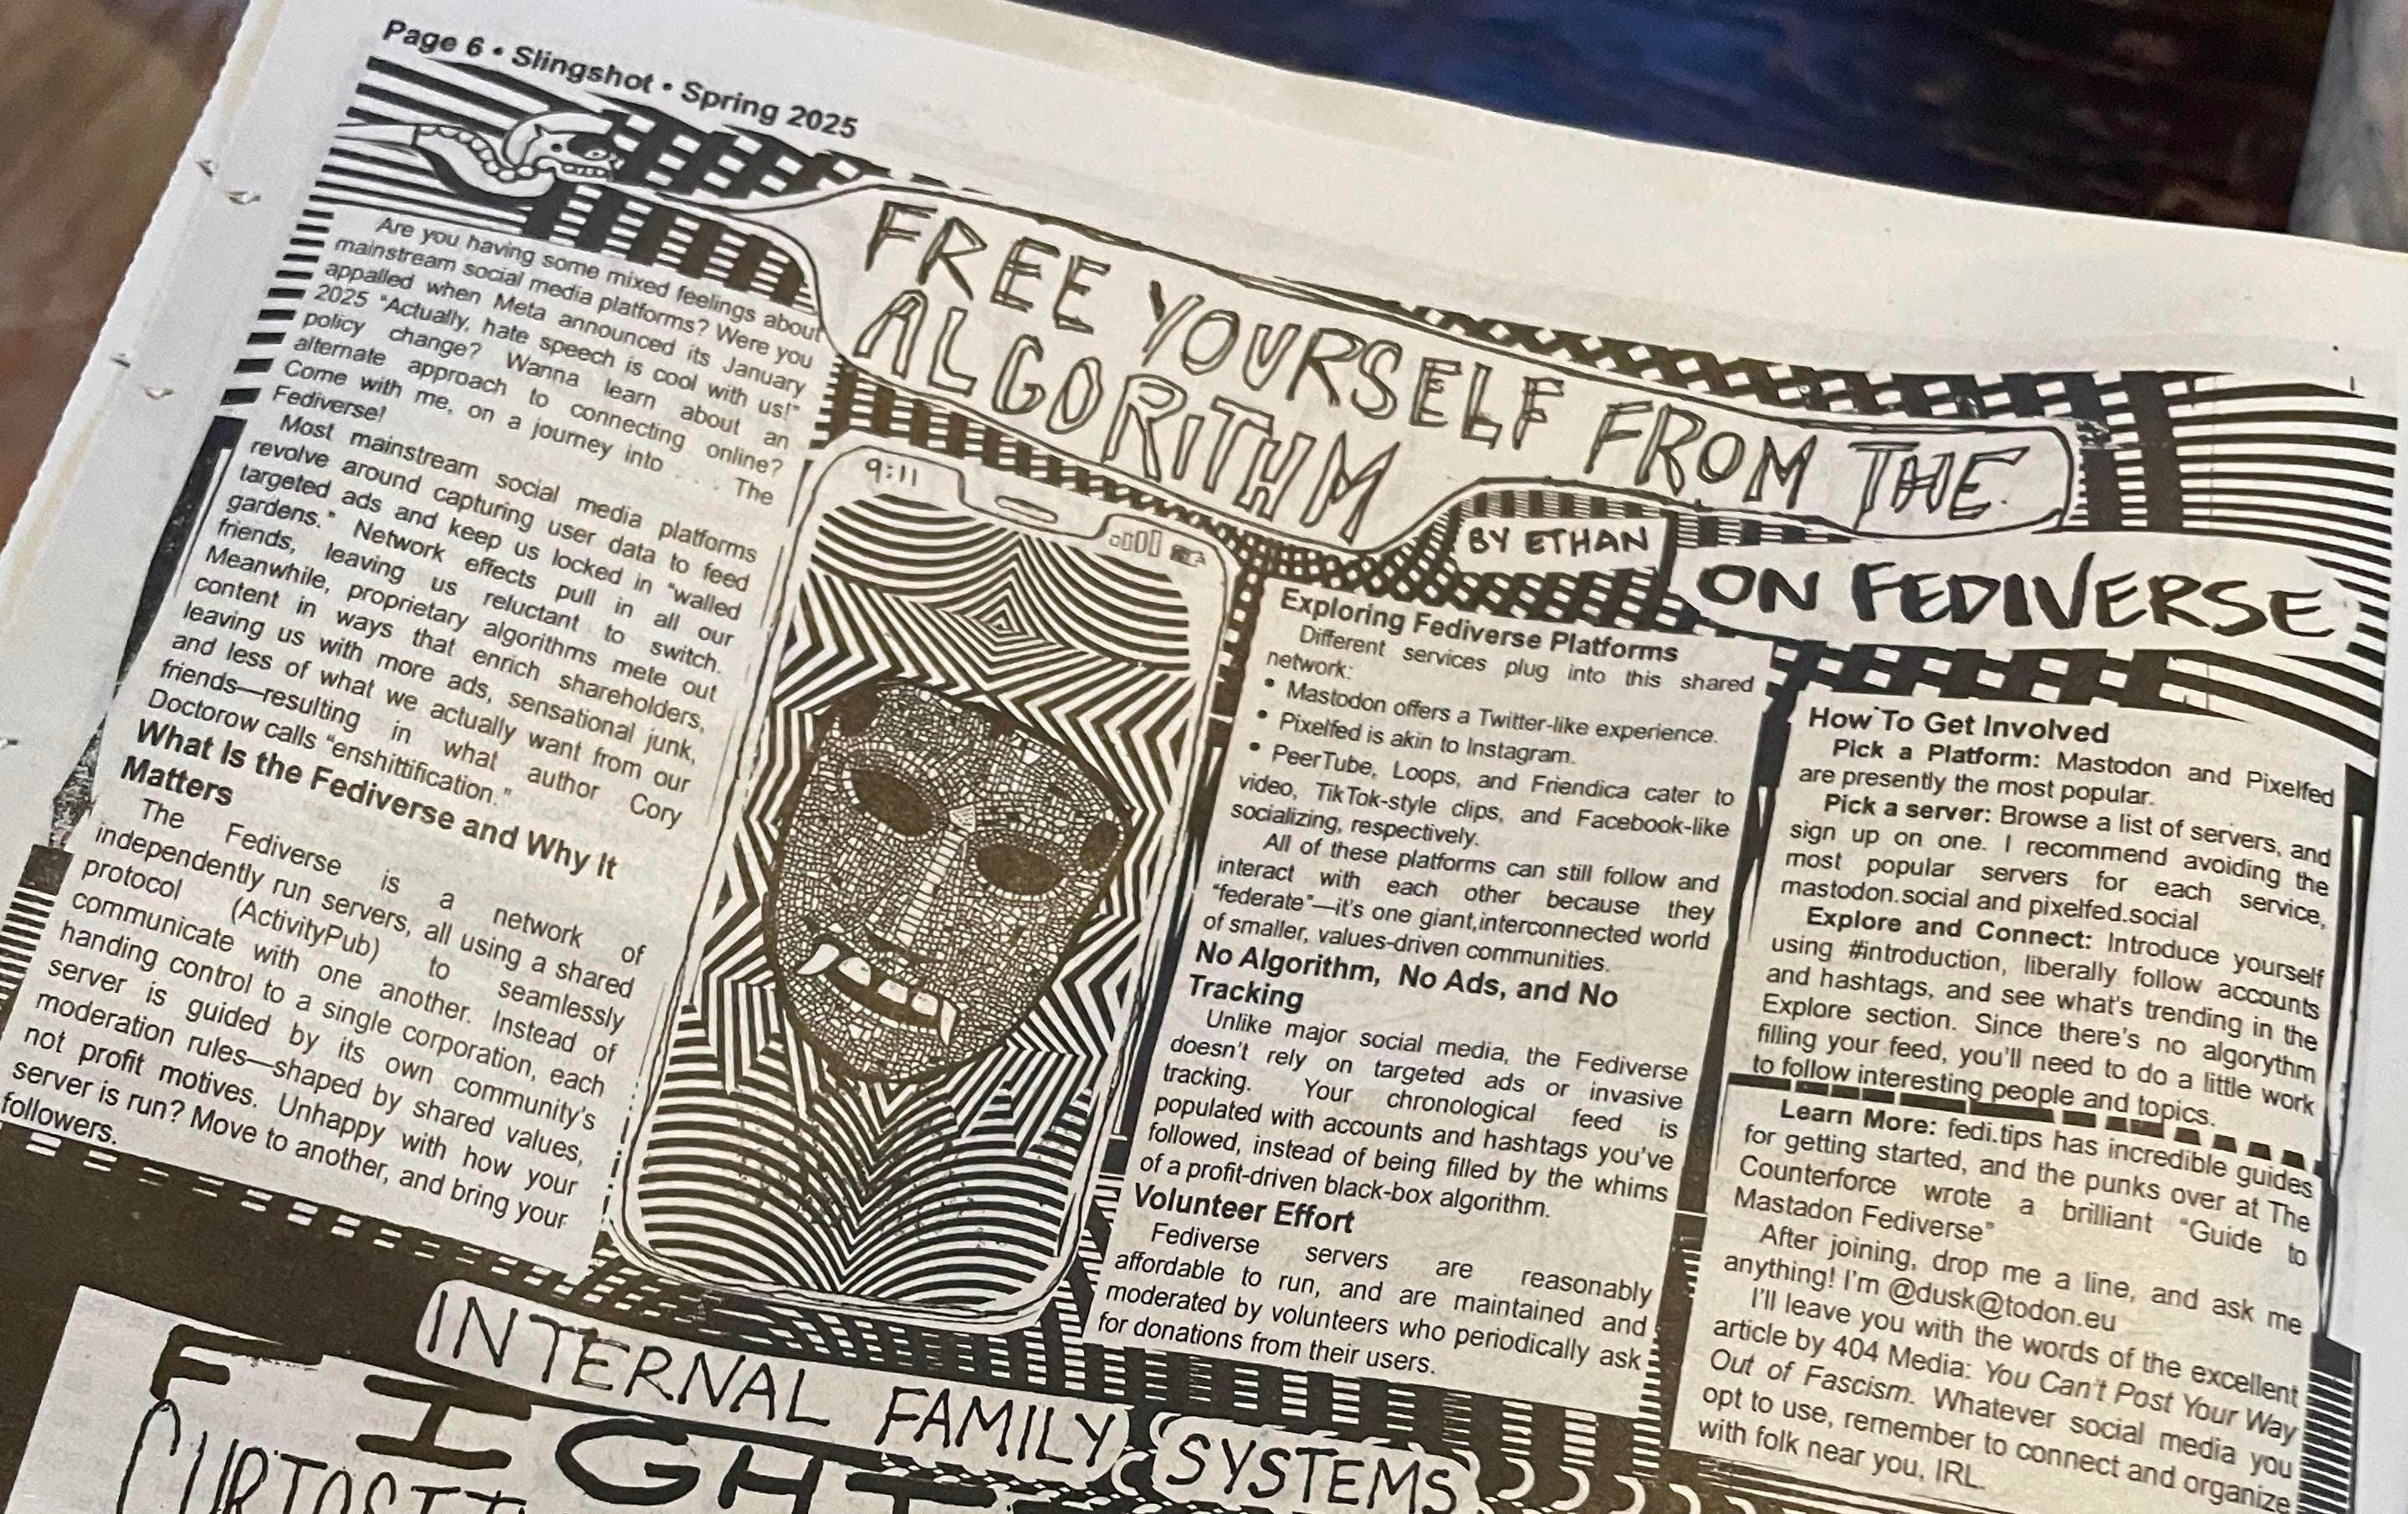 Page 6 • Slingshot • Spring 2025
FREE YOURSELF FROM THE
ALGORITHM
BY ETHAN
ON FEDIVERSE
Are you having some mixed feelings about
mainstream social media platforms? Were you
appalled when Meta announced its January
2025 "Actually, hate speech is cool with us!"
policy change? Wanna learn about an
alternate approach to connecting online?
Come with me, on a journey into . . . The
Fediverse!
Most mainstream social media platforms
revolve around capturing user data to feed
targeted ads and keep us locked in "walled
gardens." Network effects pull in all our
friends, leaving us reluctant to switch.
Meanwhile, proprietary algorithms mete out
content in ways that enrich shareholders,
leaving us with more ads, sensational junk,
and less of what we actually want from our
friends—resulting in what author Cory
Doctorow calls "enshittification."
What Is the Fediverse and Why It
Matters
The Fediverse is a network of
independently run servers, all using a shared
protocol (ActivityPub) to seamlessly
communicate with one another. Instead of
handing control to a single corporation, each
server is guided by its own community's
moderation rules—shaped by shared values,
not profit motives. Unhappy with how your
server is run? Move to another, and bring your
followers.
9:11
Exploring Fediverse Platforms
Different services plug into this shared
network:
• Mastodon offers a Twitter-like experience.
• Pixelfed is akin to Instagram.
• PeerTube, Loops, and Friendica cater to
video, TikTok-style clips, and Facebook-like
socializing, respectively.
All of these platforms can still follow and
interact with each other because they
"federate"—it's one giant,interconnected world
of smaller, values-driven communities.
No Algorithm, No Ads, and No
Tracking
Unlike major social media, the Fediverse
doesn't rely on targeted ads or invasive
tracking. Your chronological feed is
populated with accounts and hashtags you've
followed, instead of being filled by the whims
of a profit-driven black-box algorithm.
Volunteer Effort
Fediverse servers are reasonably
affordable to run, and are maintained and
moderated by volunteers who periodically ask
for donations from their users.
How To Get Involved
Pick a Platform: Mastodon and Pixelfed
are presently the most popular.
Pick a server: Browse a list of servers, and
sign up on one. I recommend avoiding the
most popular servers for each service,
mastodon.social and pixelfed.social
Explore and Connect: Introduce yourself
using #introduction, liberally follow accounts
and hashtags, and see what's trending in the
Explore section. Since there's no algorythm
filling your feed, you'll need to do a little work
to follow interesting people and topics.
Learn More: fedi.tips has incredible guides
for getting started, and the punks over at The
Counterforce wrote a brilliant "Guide to
Mastadon Fediverse"
After joining, drop me a line, and ask me
anything! I'm @dusk@todon.eu
I'll leave you with the words of the excellent
article by 404 Media: You Can't Post Your Way
Out of Fascism. Whatever social media you
opt to use, remember to connect and organize
with folk near you, IRL.
INTERNAL FAMILY SYSTEMS
FIGHT